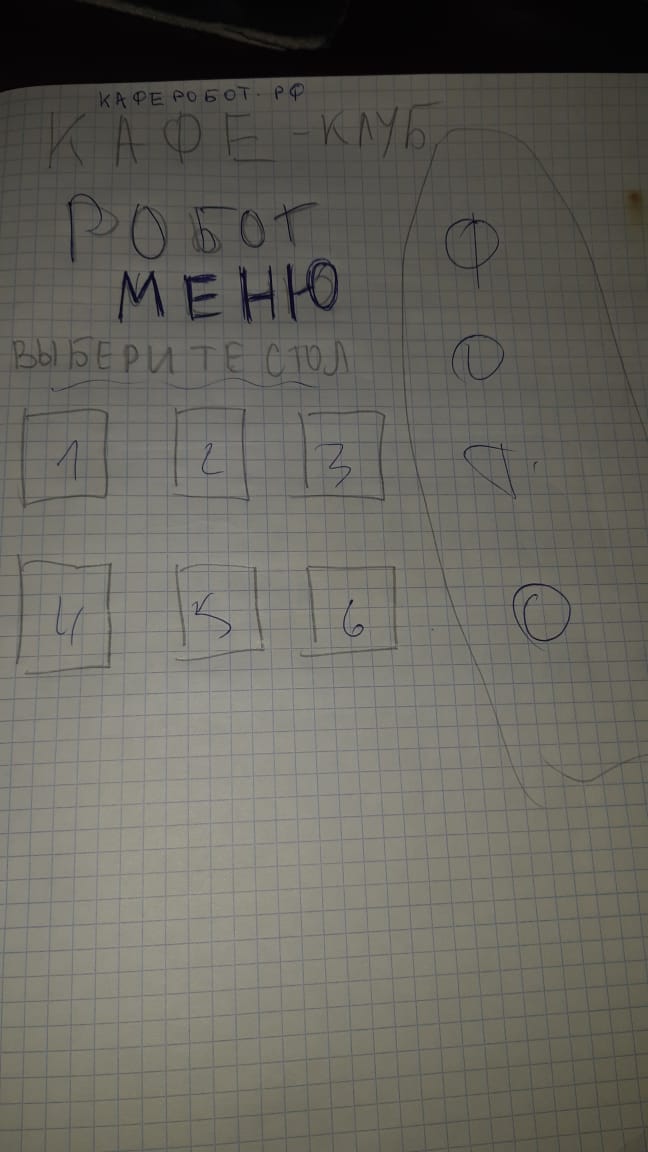 КАФЕРОБОТ.РФ
КАФЕ-КЛУБ
РОБОТ
МЕНЮ
ВЫБЕРИТЕ СТОЛ
1 2 3
4 5 6